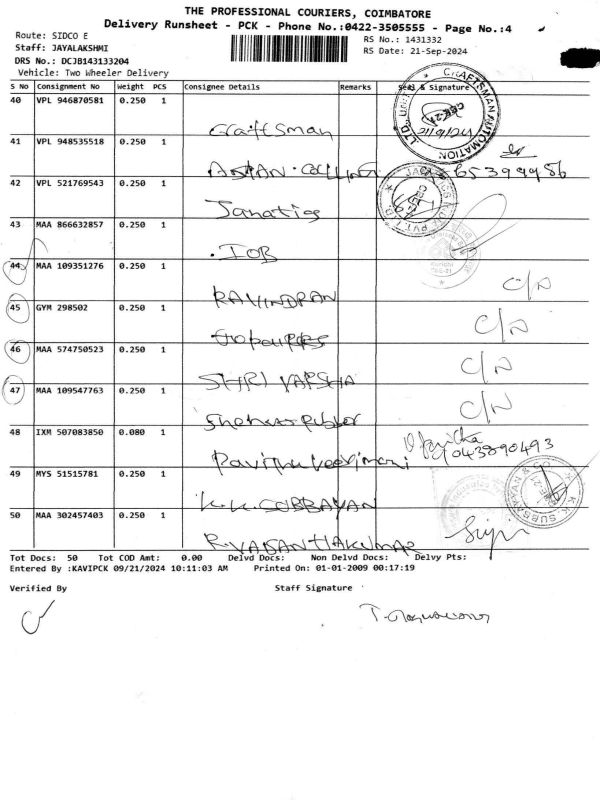 THE PROFESSIONAL COURIERS, COIMBATORE
Delivery Runsheet - PCK - Phone No.:0422-3505555 - Page No.:4
Route: SIDCO E
RS No.: 1431332
Staff: JAYALAKSHMI
RS Date: 21-Sep-2024
DRS No.: DCJB143133204
Vehicle: Two Wheeler Delivery
S No Consignment No Weight PCS Consignee Details Remarks Seal & Signature
40 VPL 946870581 0.250 1 Craftsman
CRAFTSMAN AUTOMATION LTD. UNIT
41 VPL 948535518 0.250 1
42 VPL 521769543 0.250 1 Janatics
43 MAA 866632857 0.250 1 IOB
44 MAA 109351276 0.250 1 RAVINDRAN C/N
45 GYM 298502 0.250 1 C/N
46 MAA 574750523 0.250 1 SHRI VARSHA C/N
47 MAA 109547763 0.250 1 C/N
48 IXM 507083850 0.080 1
49 MYS 51515781 0.250 1 K.K. SUBBAYAN
K.K. SUBBAYYAN & CO
50 MAA 302457403 0.250 1 R. VASANTHAKUMAR
Tot Docs: 50 Tot COD Amt: 0.00 Delvd Docs: Non Delvd Docs: Delvy Pts:
Entered By :KAVIPCK 09/21/2024 10:11:03 AM Printed On: 01-01-2009 00:17:19
Verified By Staff Signature